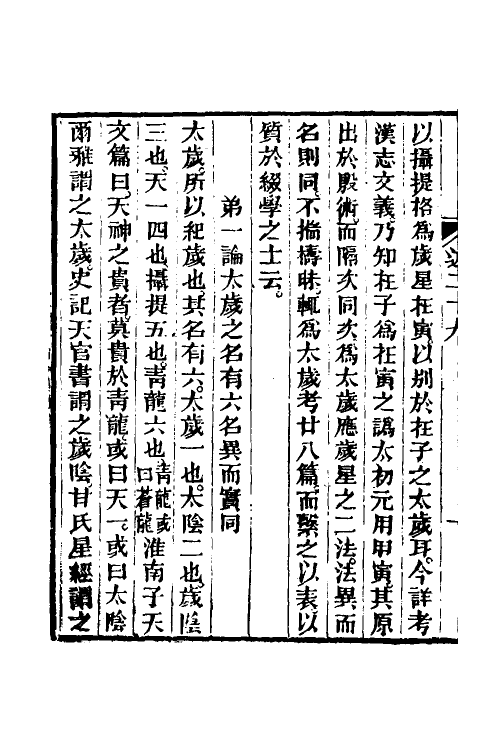 以攝提格為歲星在寅以別於在子之太歲耳。今詳考
漢志文義乃知在子為在寅之譌太初元用甲寅其原
出於殷術而隔次同次為太歲應歲星之二法。法異而
名則同不揣檮昧輒為太歲考廿八篇而繫之以表以
質於綴學之士云。
第一論太歲之名有六名異而實同
太歲所以紀歲也其名有六。太歲一也。太陰二也歲陰
三也天一四也攝提五也靑龍六也靑龍或曰蒼龍淮南子天
文篇曰天神之貴者莫貴於靑龍或曰天一。或曰太陰
爾雅謂之太歲史記天官書謂之歲陰甘氏星經謂之